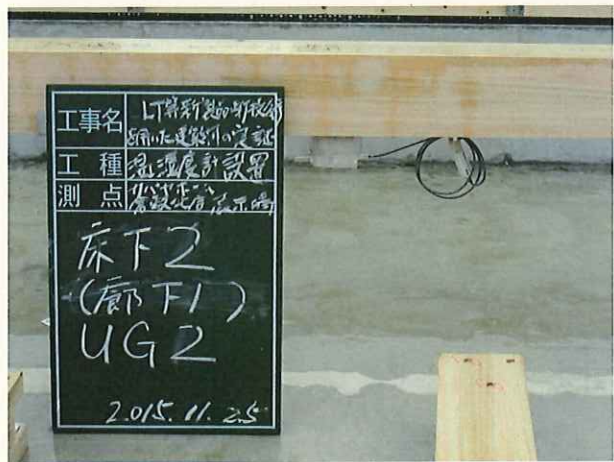 工事名 LT等新製品の新技術
を用いた建築物の実証
工種 温湿度計設置
測点
床下2
(廊下1)
UG2
2015.11.25